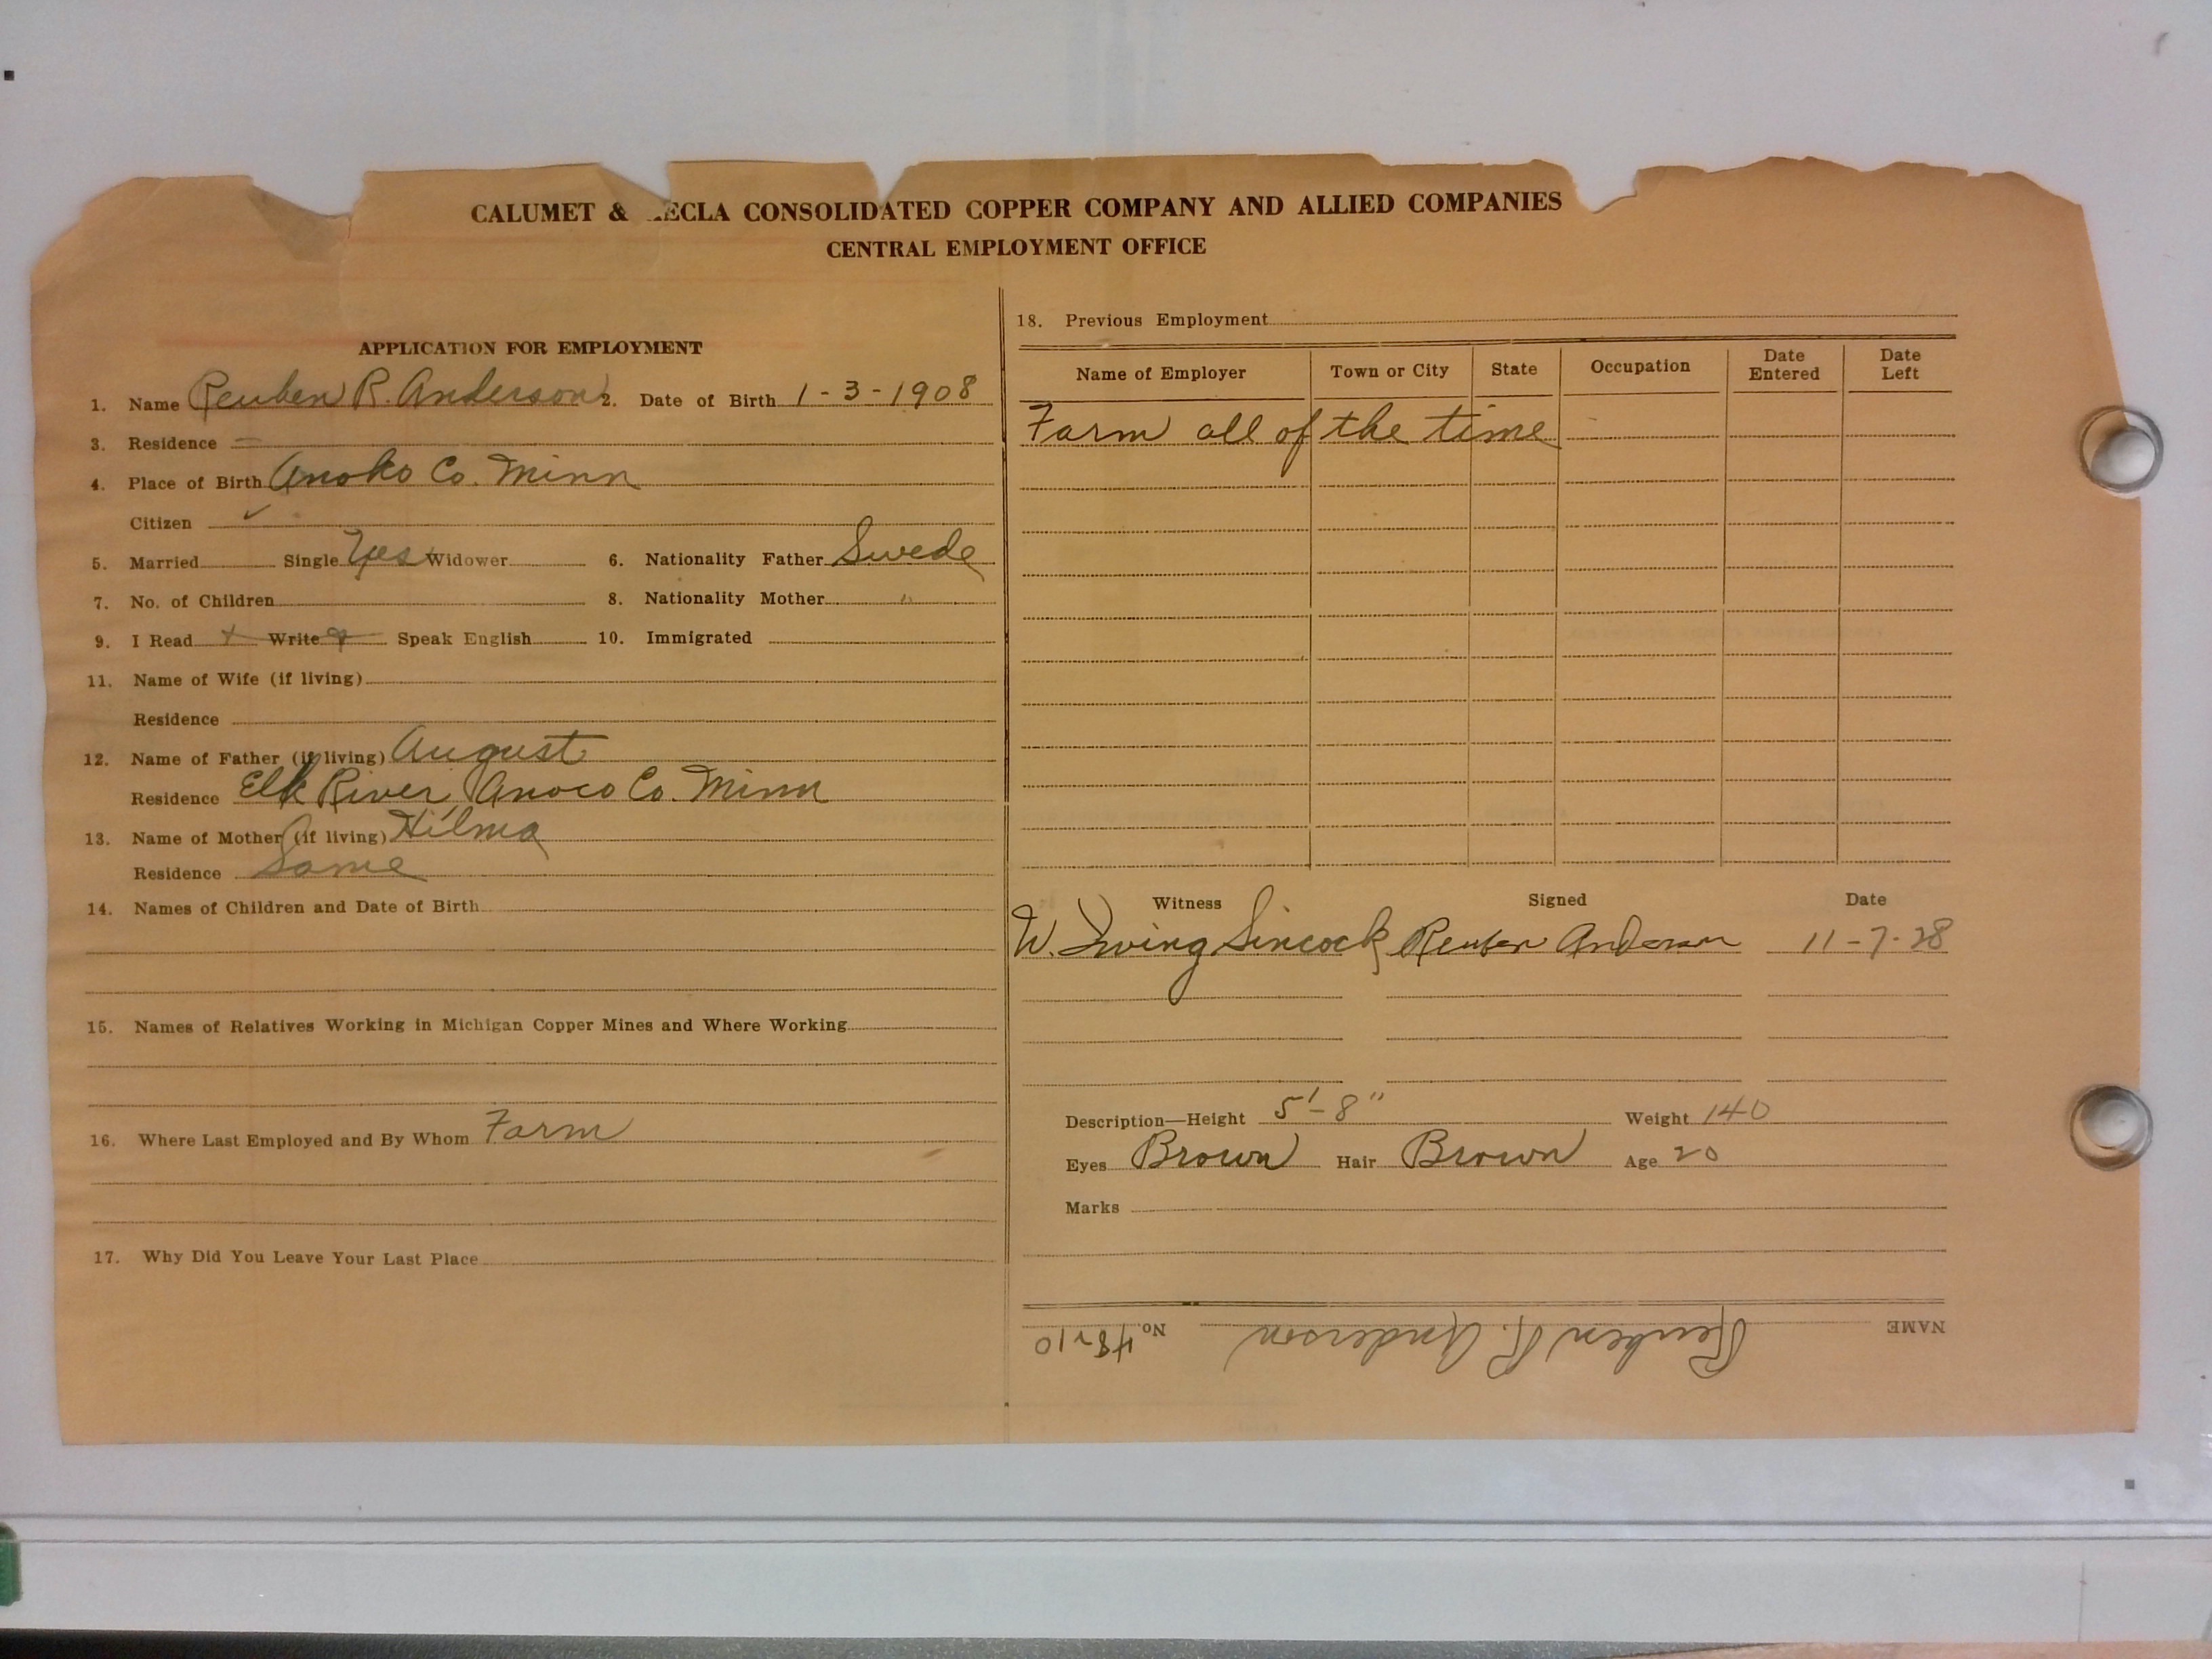 CALUMET & HECLA CONSOLIDATED COPPER COMPANY AND ALLIED COMPANIES
CENTRAL EMPLOYMENT OFFICE
APPLICATION FOR EMPLOYMENT
1. Name Reuben R. Anderson 2. Date of Birth 1-3-1908
3. Residence
4. Place of Birth Anoko Co. Minn
Citizen ✓
5. Married Single Yes Widower 6. Nationality Father Swede
7. No. of Children 8. Nationality Mother "
9. I Read Write Speak English 10. Immigrated
11. Name of Wife (if living)
Residence
12. Name of Father (if living) August
Residence Elk River, Anoco Co. Minn
13. Name of Mother (if living) Hilma
Residence Same
14. Names of Children and Date of Birth
15. Names of Relatives Working in Michigan Copper Mines and Where Working
16. Where Last Employed and By Whom Farm
17. Why Did You Leave Your Last Place
18. Previous Employment
Name of Employer Town or City State Occupation Date Entered Date Left
Farm all of the time
Witness Signed Date
W. Irving Sincock Reuben Anderson 11-7-28
Description—Height 5'-8" Weight 140
Eyes Brown Hair Brown Age 20
Marks
NAME Reuben R. Anderson No. 48210